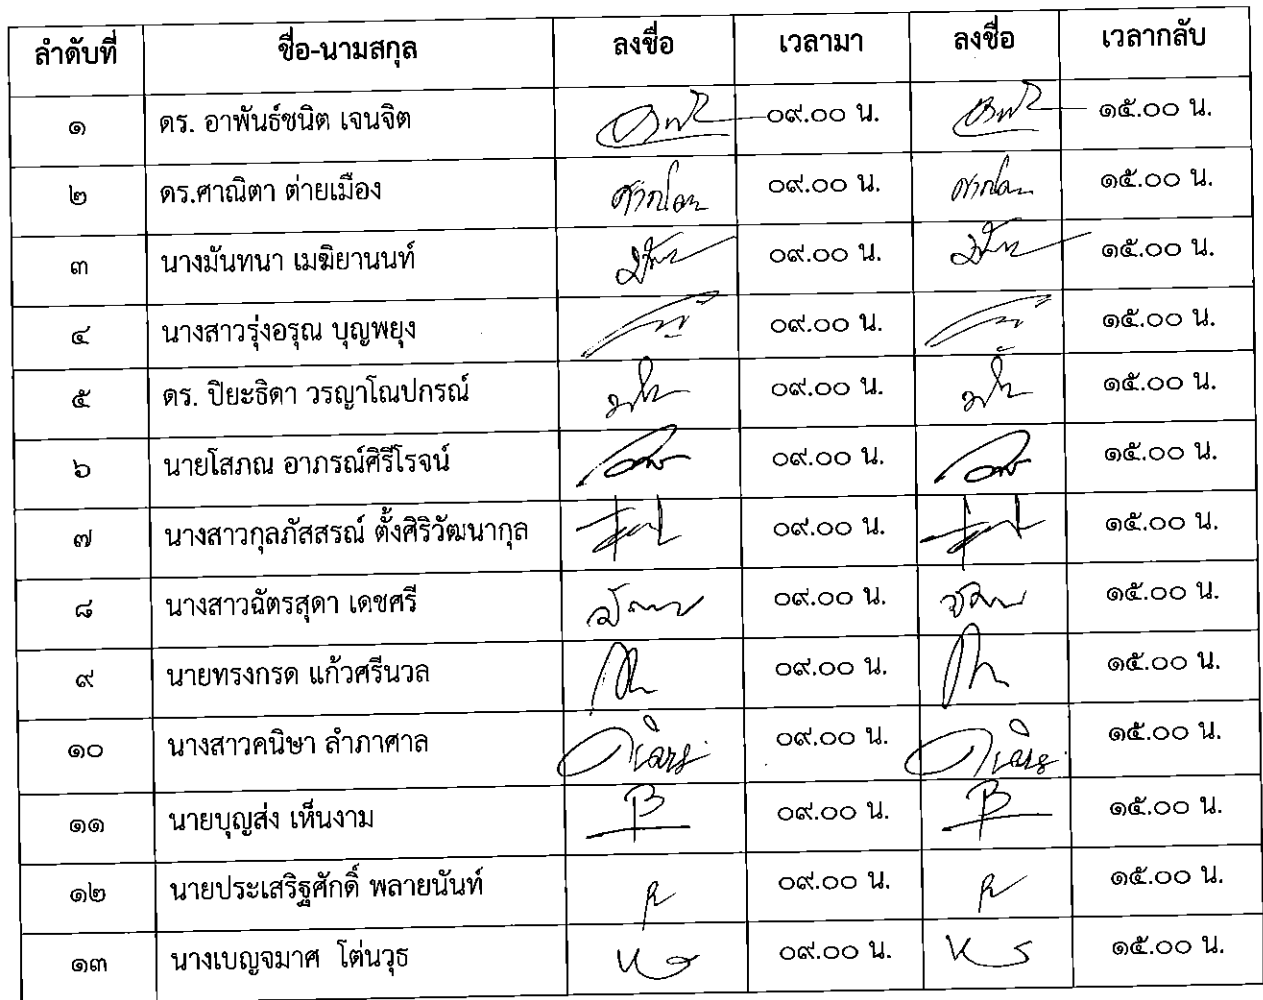 ลำดับที่ ชื่อ-นามสกุล ลงชื่อ เวลามา ลงชื่อ เวลากลับ
๑ ดร. อาพันธ์ชนิต เจนจิต ๐๙.๐๐ น. ๑๕.๐๐ น.
๒ ดร.ศาณิตา ต่ายเมือง ๐๙.๐๐ น. ๑๕.๐๐ น.
๓ นางมันทนา เมฆิยานนท์ ๐๙.๐๐ น. ๑๕.๐๐ น.
๔ นางสาวรุ่งอรุณ บุญพยุง ๐๙.๐๐ น. ๑๕.๐๐ น.
๕ ดร. ปิยะธิดา วรญาโณปกรณ์ ๐๙.๐๐ น. ๑๕.๐๐ น.
๖ นายโสภณ อาภรณ์ศิริโรจน์ ๐๙.๐๐ น. ๑๕.๐๐ น.
๗ นางสาวกุลภัสสรณ์ ตั้งศิริวัฒนากุล ๐๙.๐๐ น. ๑๕.๐๐ น.
๘ นางสาวฉัตรสุดา เดชศรี ๐๙.๐๐ น. ๑๕.๐๐ น.
๙ นายทรงกรด แก้วศรีนวล ๐๙.๐๐ น. ๑๕.๐๐ น.
๑๐ นางสาวคนิษา ลำภาศาล ๐๙.๐๐ น. ๑๕.๐๐ น.
๑๑ นายบุญส่ง เห็นงาม ๐๙.๐๐ น. ๑๕.๐๐ น.
๑๒ นายประเสริฐศักดิ์ พลายนันท์ ๐๙.๐๐ น. ๑๕.๐๐ น.
๑๓ นางเบญจมาศ โต่นวุธ ๐๙.๐๐ น. ๑๕.๐๐ น.